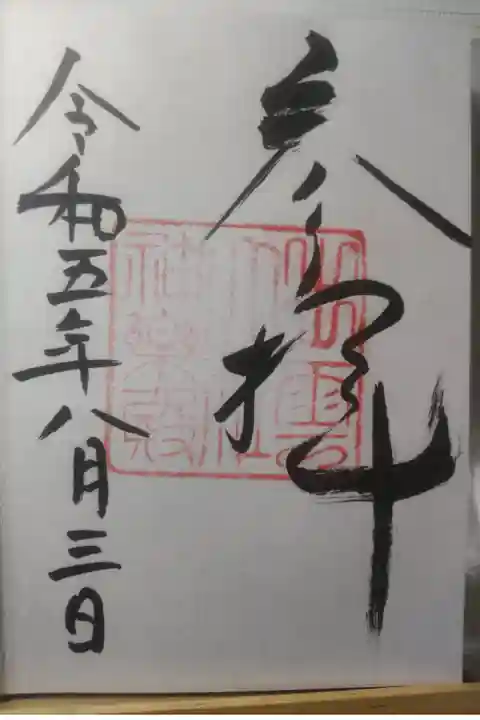 参拝
令和五年八月三日